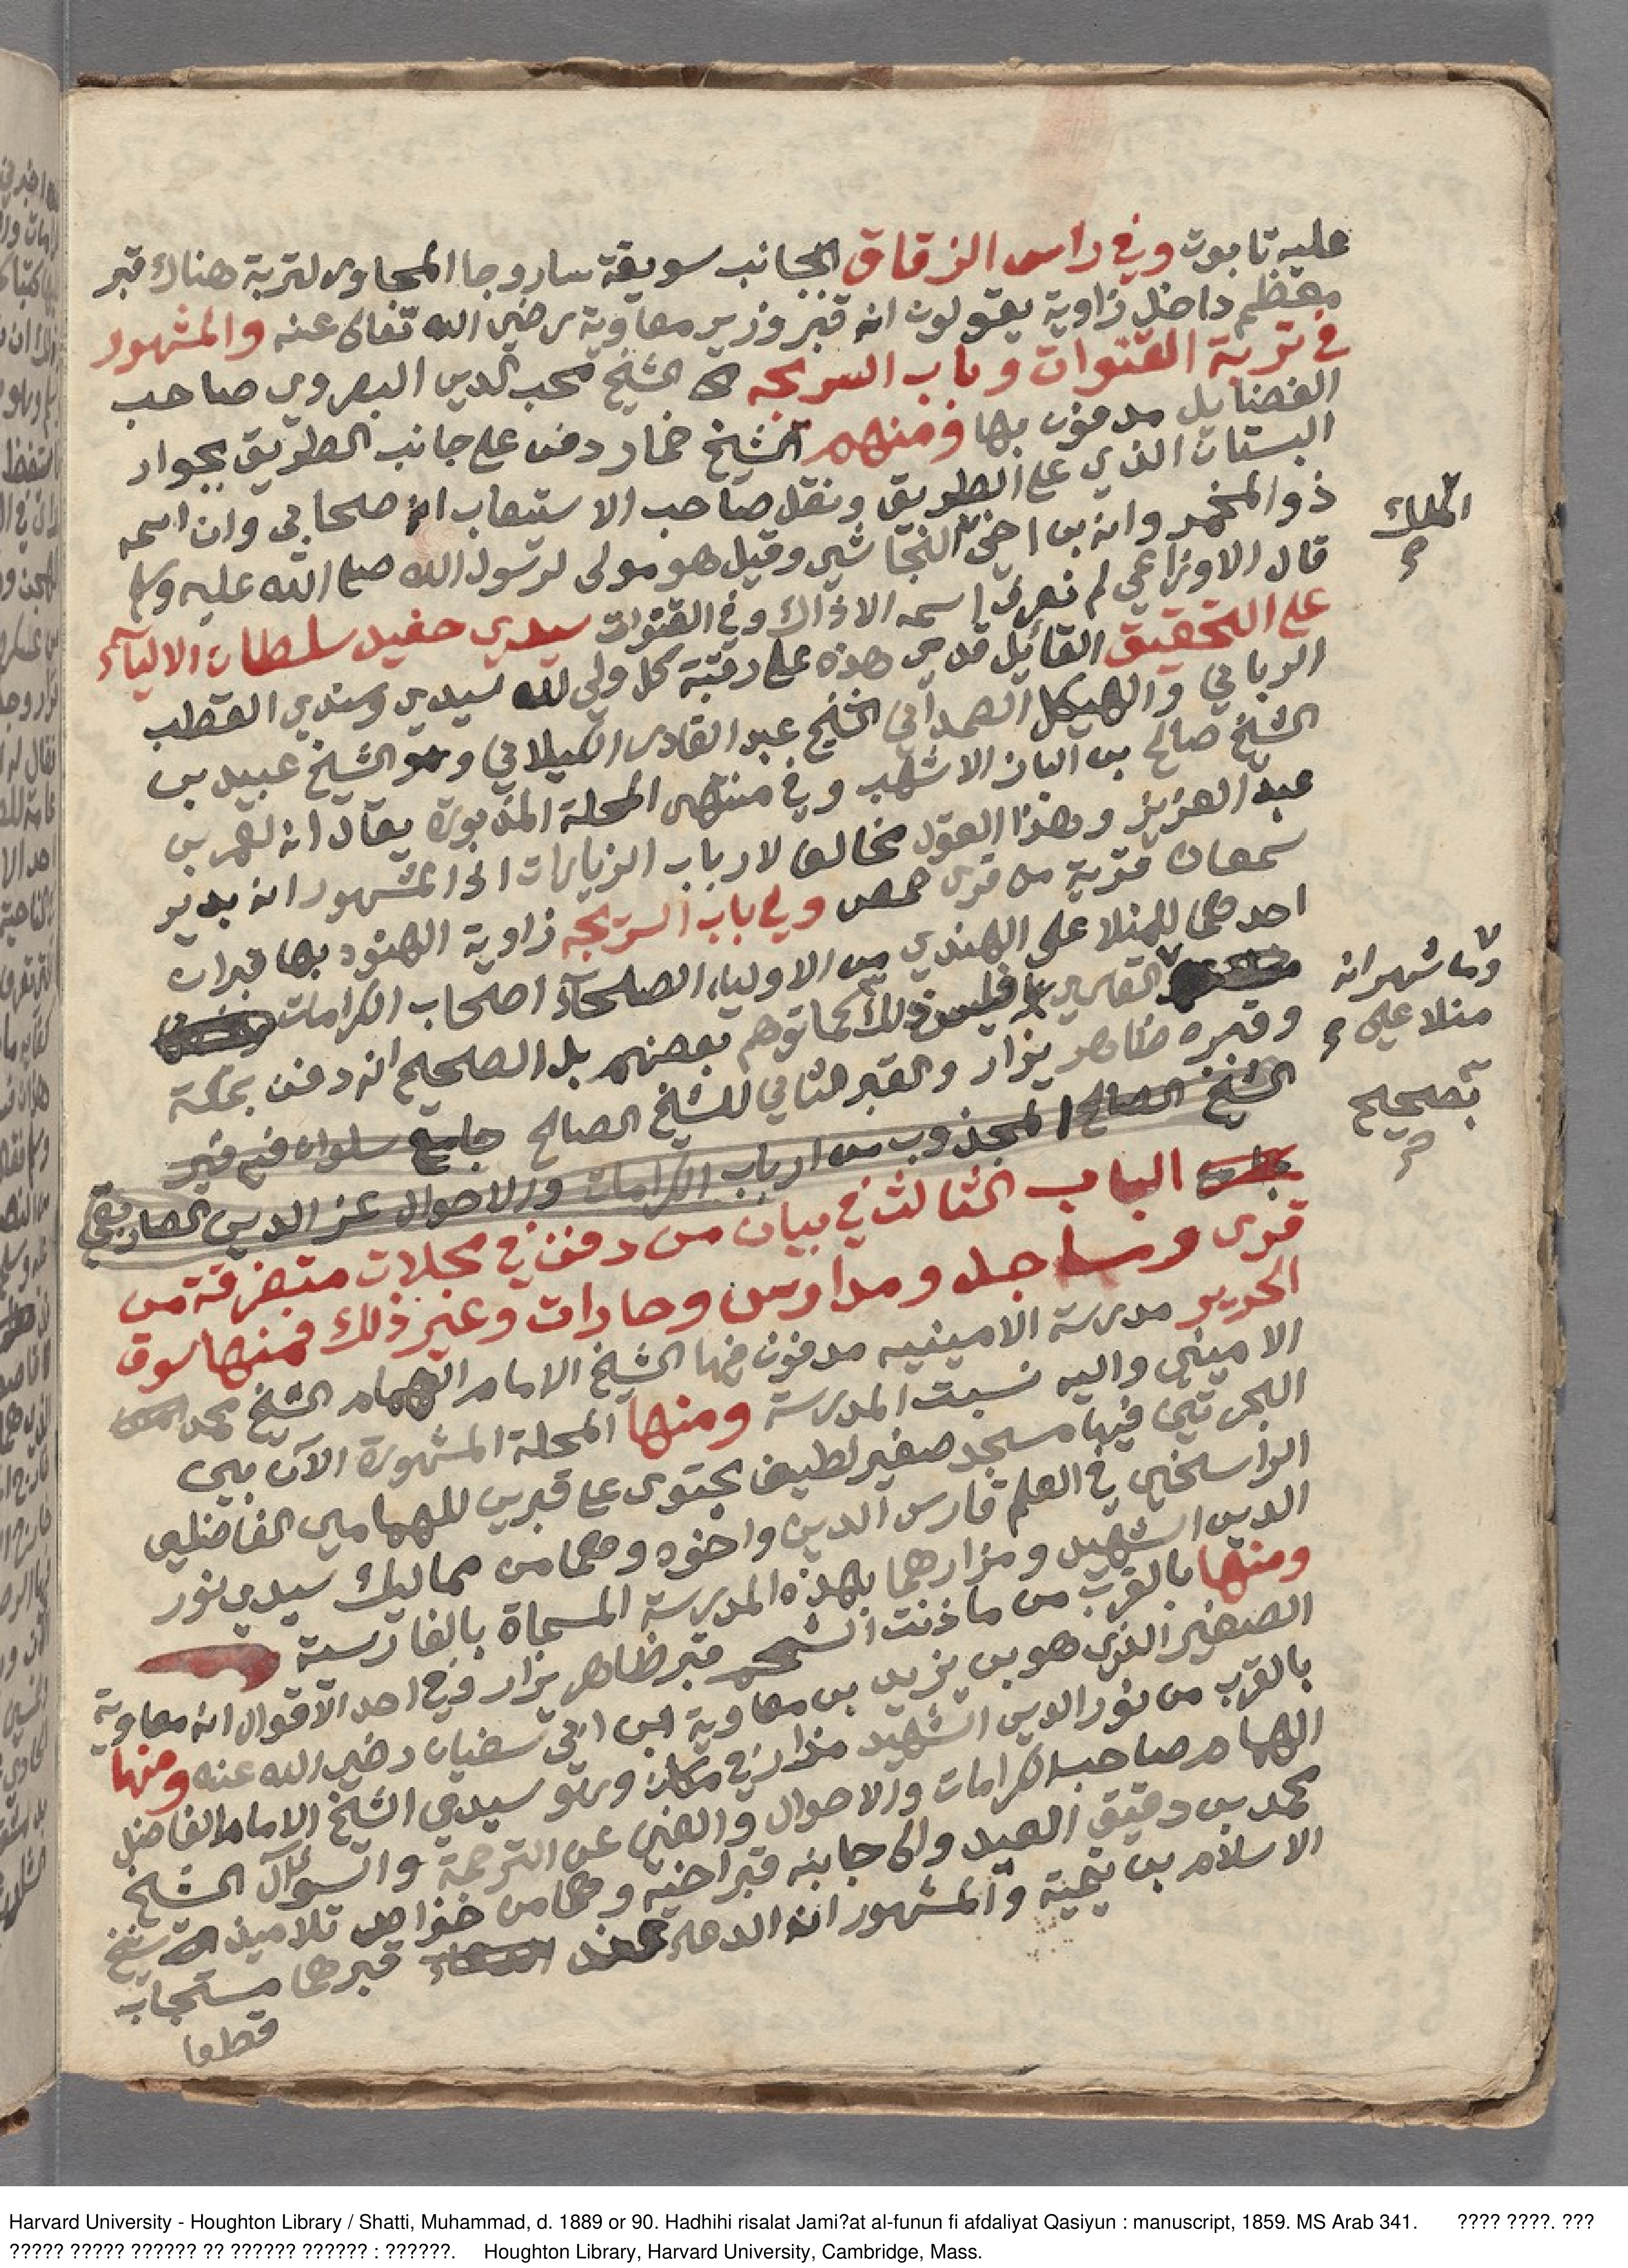 عليه تابوت وفي راس الزقاق الجانب سويقة ساروجا المحاوى لتربة هناك قبر
معظم داخل زاوية يقولون انه قبر وزير معاوية رضي الله تعالى عنه والمشهور
في تربة القنوات وباب السريجه الشيخ محب الدين البصروي صاحب
الفضايل مدفون بها ومنهم الشيخ خمار دفن على جانب الطريق بجوار
البستان الذي على الطريق ونقل صاحب الاستيعاب انه صحابي وان اسمه
ذو المخمر وانه بن اخي النجاشي وقيل هو مولى لرسول الله صلى الله عليه وسلم
الملك
قال الاوزاعي لم نعرف اسمه الا ذاك وفي القنوات سيدي حفيد سلطان الاليآء
على التحقيق القائيل قدمي هذه على رقبة كل ولي لله سيدي وسندي القطب
الرباني والهيكل الصمداني الشيخ عبد القادر الكيلاني وهو الشيخ عبيد بن
الشيخ صالح بن الباز الاشهب وفي منتهى المحلة المذبورة يقال انه لعمر بن
عبد العزيز وهذا القول مخالف لارباب الزيارات اذ المشهور انه بدير
سمعان قرية من قرى حمص وفي باب السريجه زاوية الهنود بها قبران
احدهما للمنلا على الهندي من الاولياء الصلحآء اصحاب الكرامات
وما شهر انه
منلا علي
القاري فليس ذلك كما توهم بعضهم بل الصحيح انه دفن بمكة
وقبره ظاهر يزار والقبر الثاني للشيخ الصالح جامع سلوان فيه قبر
تصحيح
الشيخ الصالح المجذوب من ارباب الكرامات والاحوال عز الدين الصارفي
الباب الثالث في بيان من دفن في محلات متفرقة من
قرى ومساجد ومدارس وحارات وغير ذلك فمنها سوق
الحرير مدرسة الامينيه مدفون فيها الشيخ الامام الهمام الشيخ محمد
الاميني واليه نسبت المدرسة ومنها المحلة المشهورة الآن ببين
البحرتين فيها مسجد صغير لطيف يحتوى على قبرين للهمامين الفاضلين
الراسخين في العلم فارس الدين واخوه وهما من مماليك سيدي نور
الدين الشهيد ومزارهما بهذه المدرسة المسماة بالفارسية
ومنها بالقرب من ماذنت الشحم قبر ظاهر يزار وفي احد الاقوال انه معاوية
الصغير الذي هو بن يزيد بن معاوية ابن ابي سفيان رضي الله عنه ومنها
بالقرب من نور الدين الشهيد مزار في وهو سيدي الشيخ الامام الفاضل
الهمام صاحب الكرامات والاحوال والغني عن الترجمة والسوآل الشيخ
محمد بن دقيق العيد والى جانبه قبر اخيه وهما من خواص تلاميذ شيخ
الاسلام بن تيمية والمشهور ان الدعاء عند قبرهما مستجاب
قطعا
Harvard University - Houghton Library / Shatti, Muhammad, d. 1889 or 90. Hadhihi risalat Jami?at al-funun fi afdaliyat Qasiyun : manuscript, 1859. MS Arab 341. ???? ????. ???
????? ????? ?????? ?? ?????? ?????? : ??????. Houghton Library, Harvard University, Cambridge, Mass.